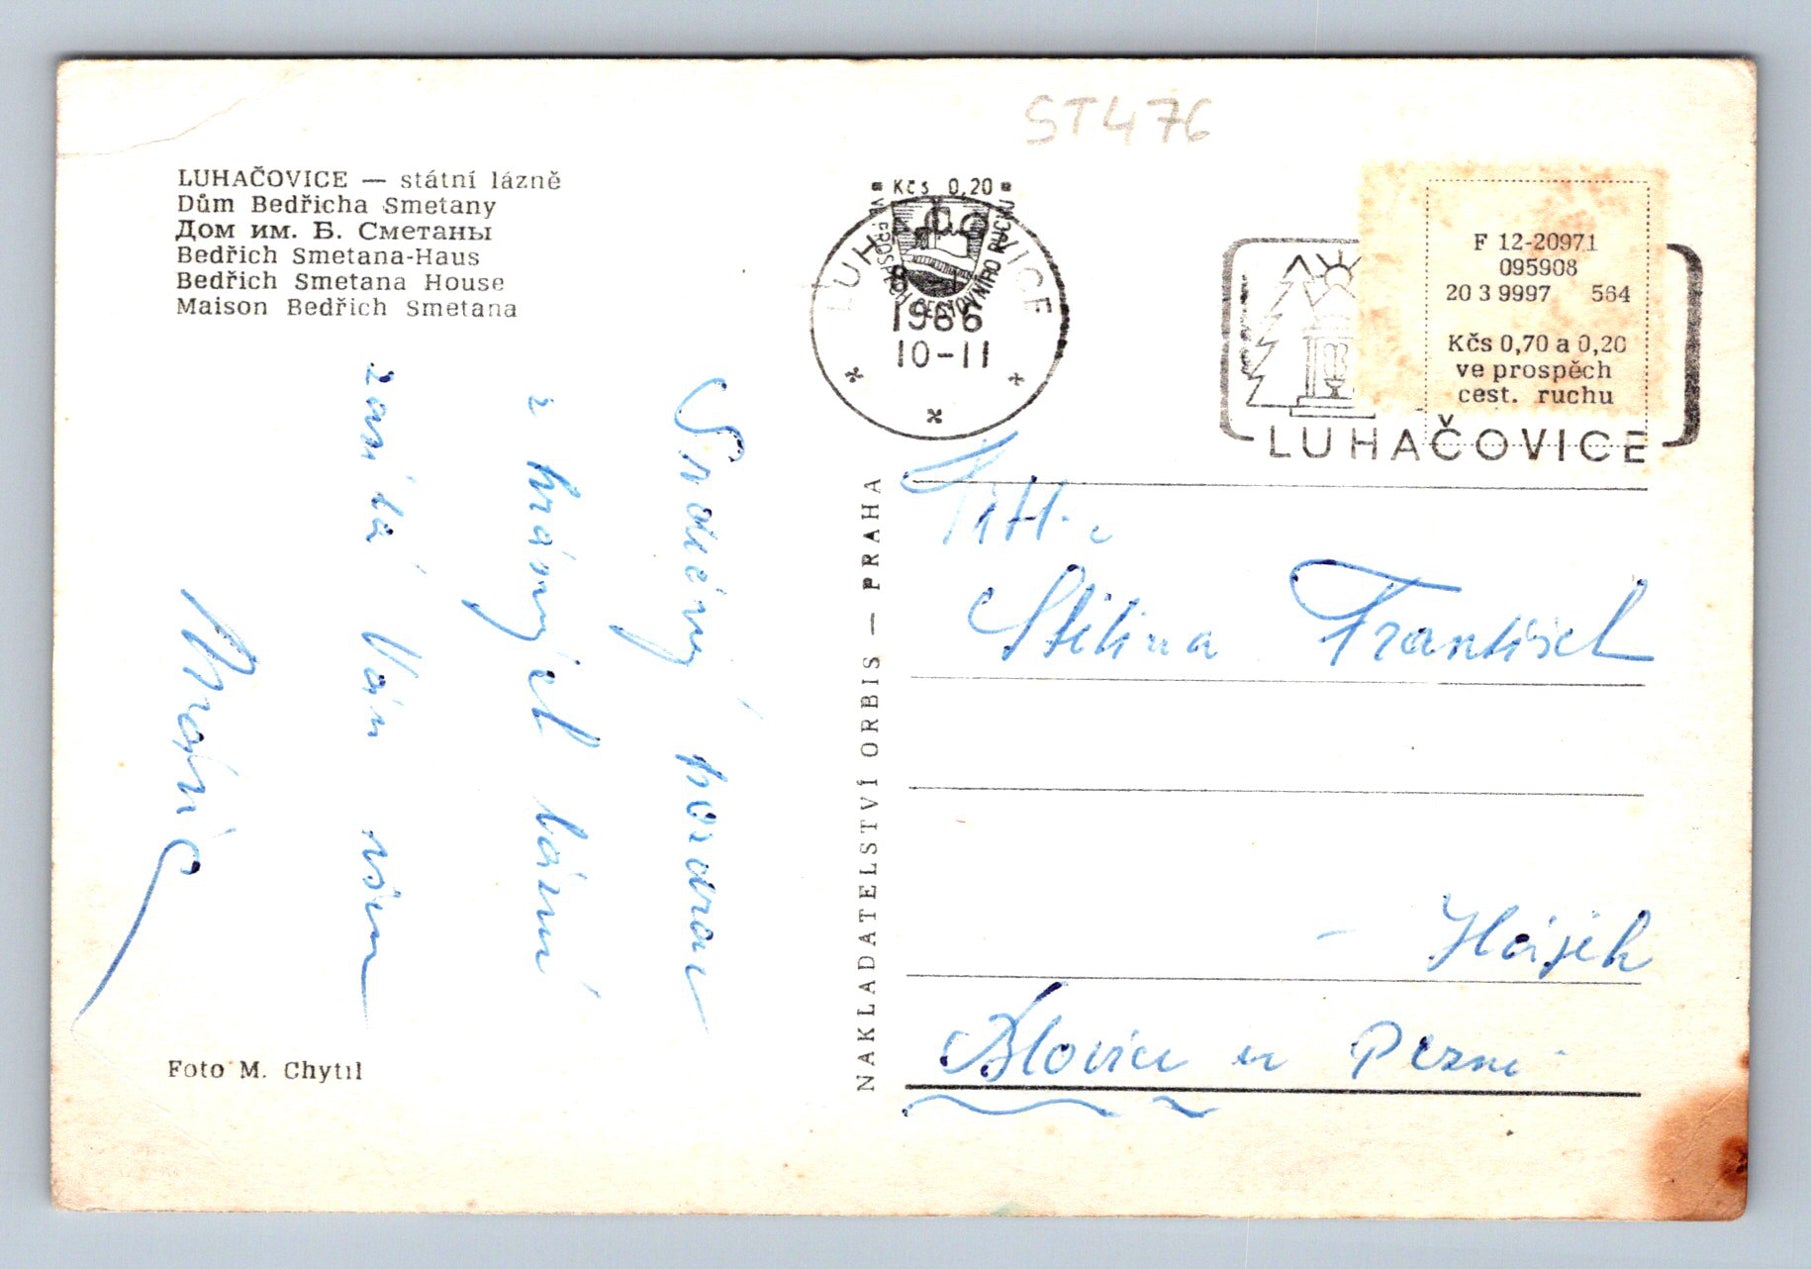 ST476
LUHAČOVICE — státní lázně
Dům Bedřicha Smetany
Дом им. Б. Сметаны
Bedřich Smetana-Haus
Bedřich Smetana House
Maison Bedřich Smetana
Srdečný pozdrav
z krásných lázní
zasílá Vám
Foto M. Chytil
NAKLADATELSTVÍ ORBIS — PRAHA
Kčs 0,20
VE PROSPĚCH CESTOVNÍHO RUCHU
LUHAČOVICE
1966
10-11
F 12-20971
095908
20 3 9997 564
Kčs 0,70 a 0,20
ve prospěch
cest. ruchu
LUHAČOVICE
František
- Hájek
Blovice u Plzně